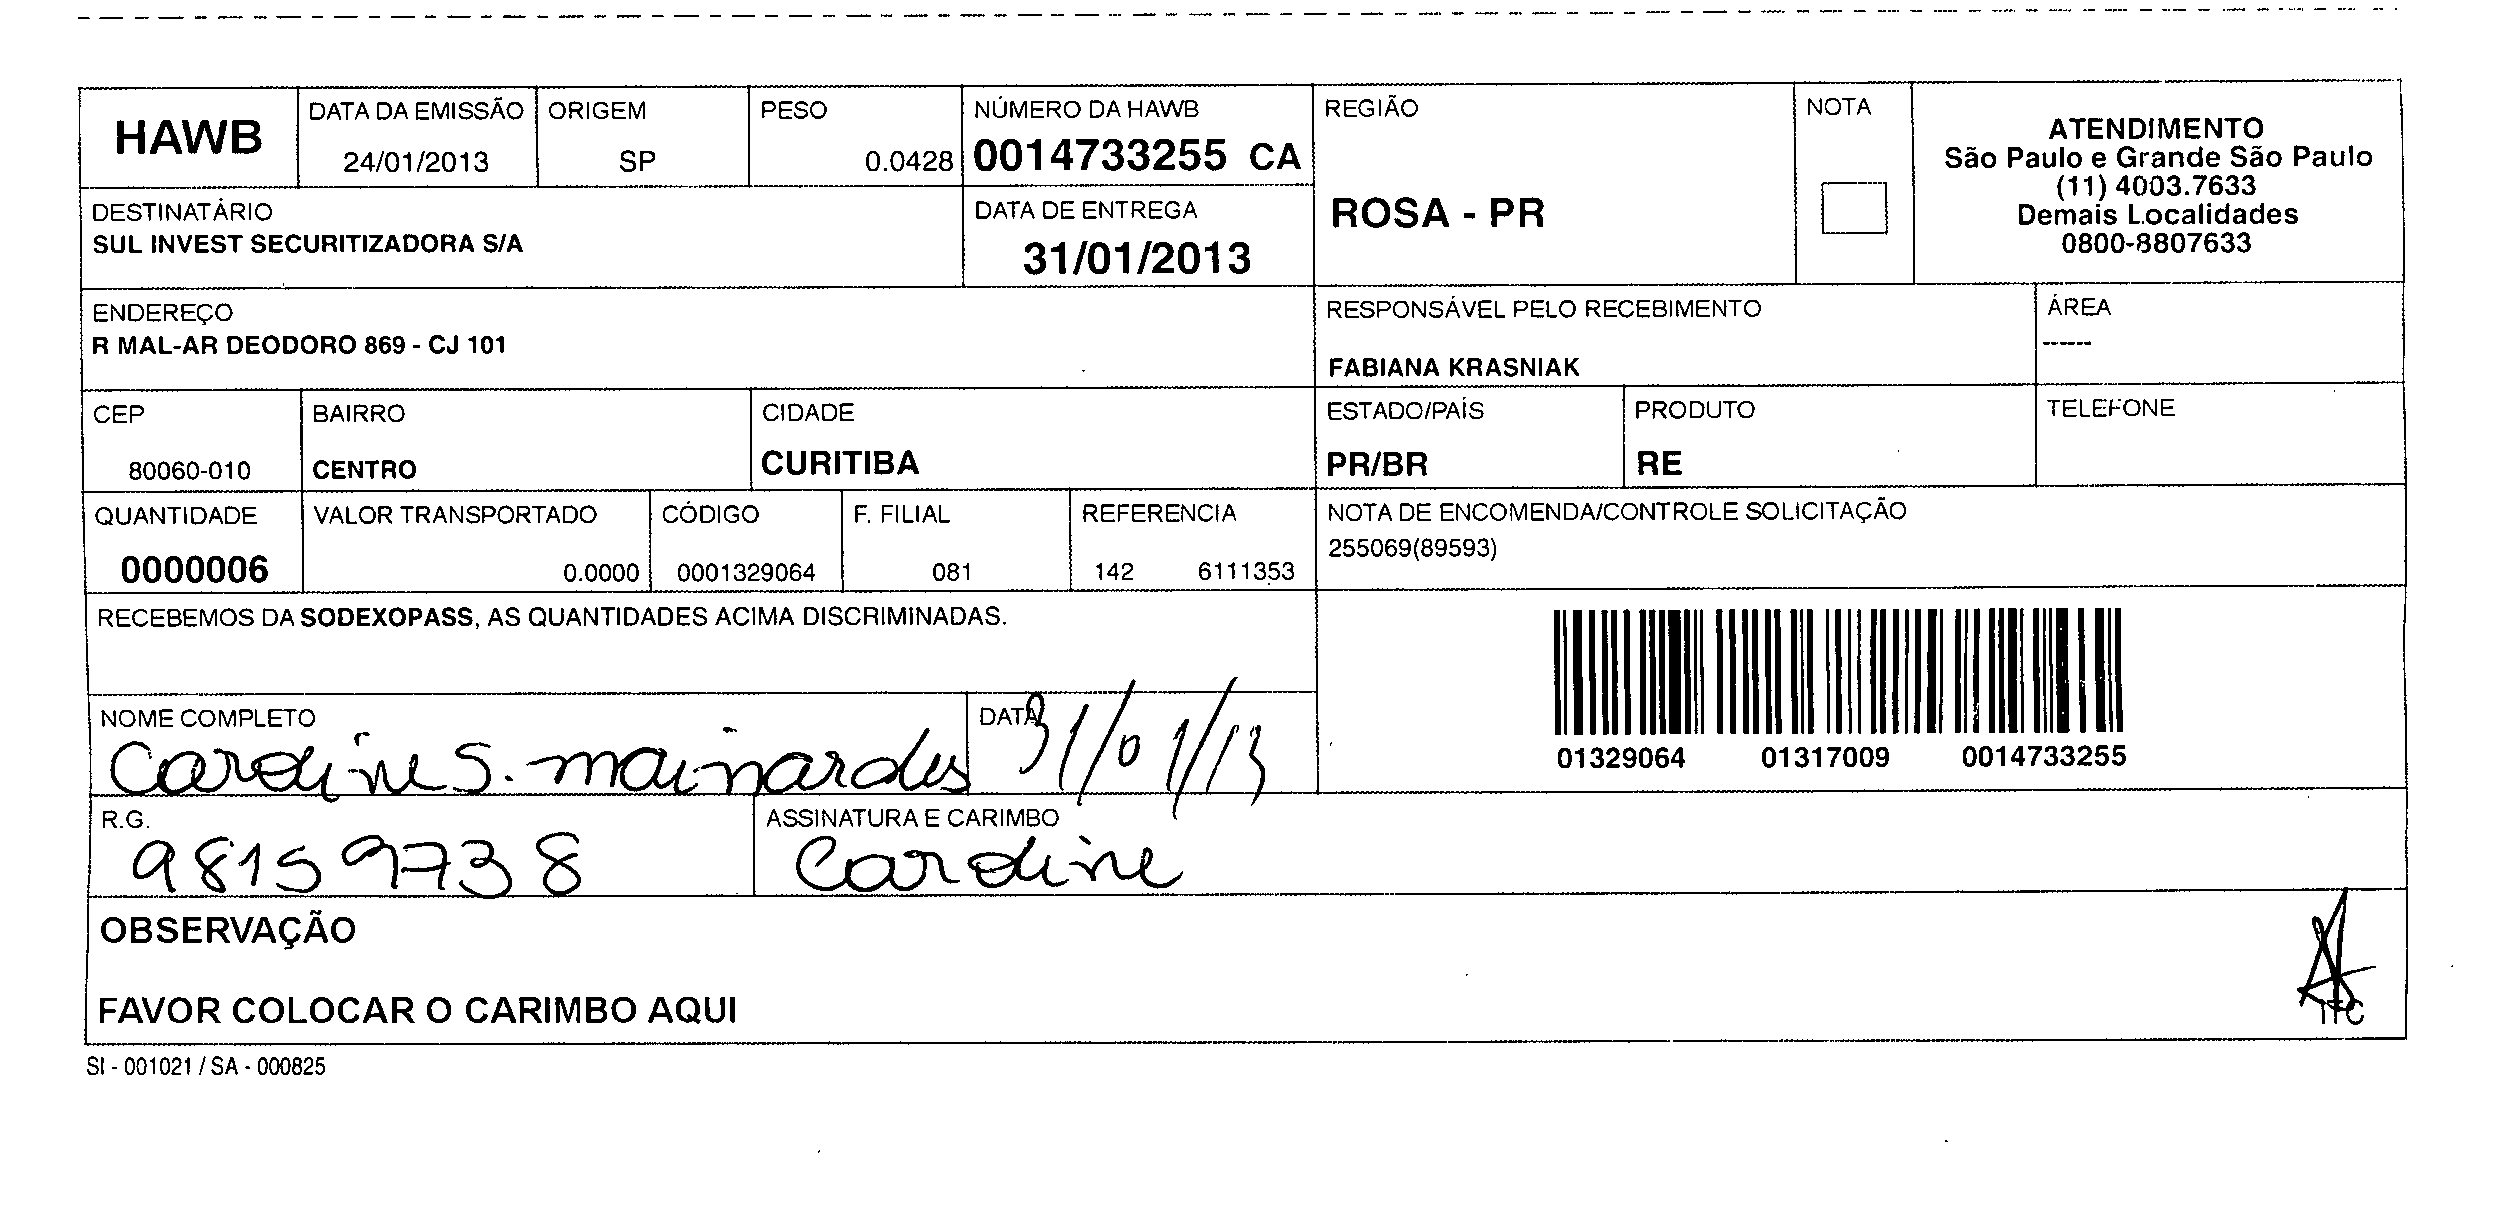 HAWB
DATA DA EMISSÃO
24/01/2013
ORIGEM
SP
PESO
0.0428
NÚMERO DA HAWB
0014733255 CA
REGIÃO
ROSA - PR
NOTA
ATENDIMENTO
São Paulo e Grande São Paulo
(11) 4003.7633
Demais Localidades
0800-8807633
DESTINATÁRIO
SUL INVEST SECURITIZADORA S/A
DATA DE ENTREGA
31/01/2013
ENDEREÇO
R MAL-AR DEODORO 869 - CJ 101
RESPONSÁVEL PELO RECEBIMENTO
FABIANA KRASNIAK
ÁREA
------
CEP
80060-010
BAIRRO
CENTRO
CIDADE
CURITIBA
ESTADO/PAÍS
PR/BR
PRODUTO
RE
TELEFONE
QUANTIDADE
0000006
VALOR TRANSPORTADO
0.0000
CÓDIGO
0001329064
F. FILIAL
081
REFERENCIA
142 6111353
NOTA DE ENCOMENDA/CONTROLE SOLICITAÇÃO
255069(89593)
RECEBEMOS DA SODEXOPASS, AS QUANTIDADES ACIMA DISCRIMINADAS.
01329064 01317009 0014733255
NOME COMPLETO
Caroline S. mainardes
DATA
31/01/13
R.G.
98159738
ASSINATURA E CARIMBO
Caroline
OBSERVAÇÃO
FAVOR COLOCAR O CARIMBO AQUI
SI - 001021 / SA - 000825